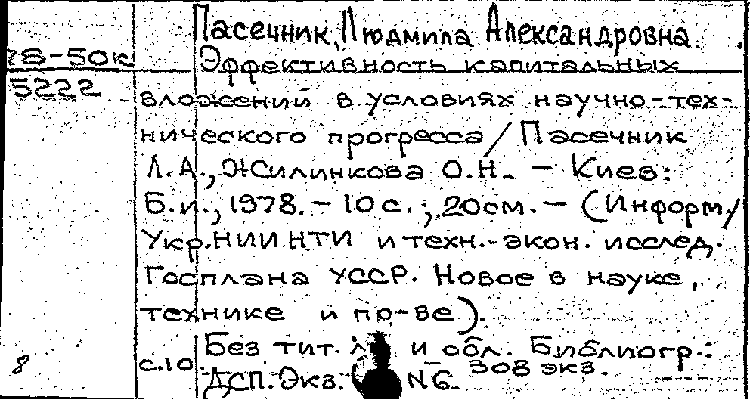 Пасечник, Людмила Александровна.
78-50к Эффективность капитальных
5222 вложений в условиях научно-тех-
нического прогресса/Пасечник
Л.А., Жилинкова О.Н. — Киев:
Б.и., 1978. - 10 с.; 20см. — (Информ/
Укр.НИИНТИ и техн.-экон. исслед.
Госплана УССР. Новое в науке,
технике и пр-ве).
Без тит. л. и обл. Библиогр.:
8 с.10. ДСП. Экз. N6. 308 экз.